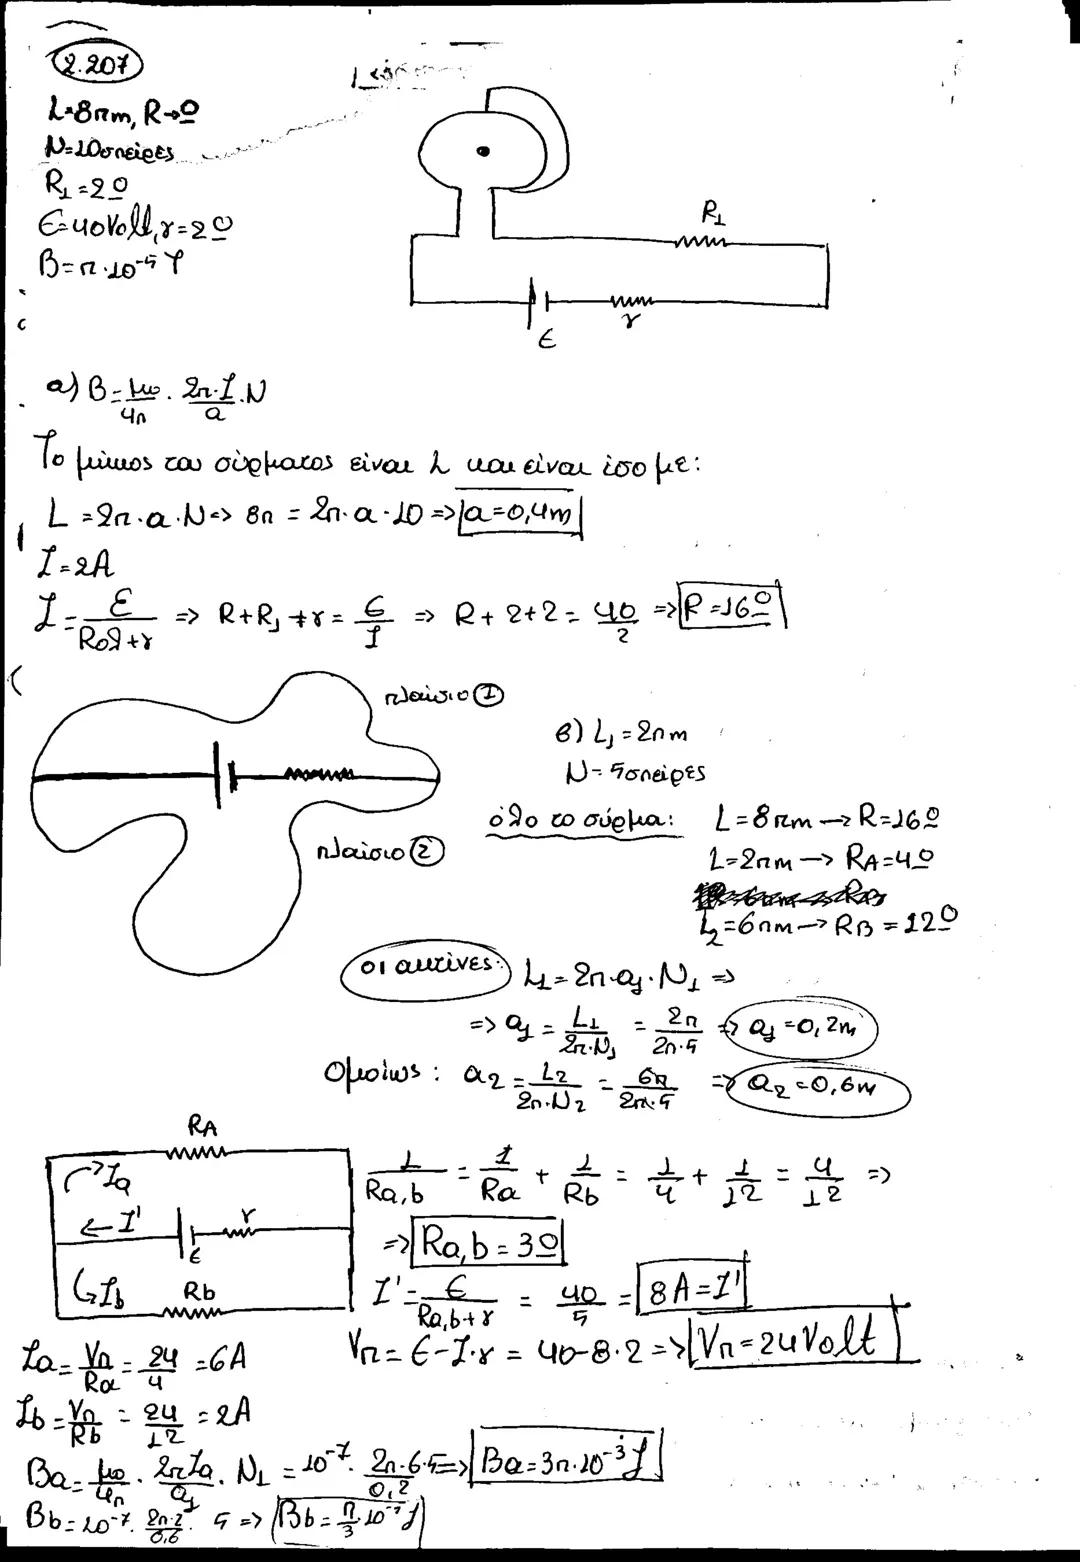 2.207
L=8πm, R→Ω
N=10σπείρες
R₁=2Ω
ε=40Volt, r=2Ω
B=π·10⁻⁵ T
R₁
r
ε
α) B=μ₀/4π · 2π·I/α · N
Το μήκος του σύρματος είναι L και είναι ίσο με:
L=2π·α·N => 8π = 2π·α·10 => α=0,4m
I=2A
I=ε/(Rολ+r) => R+R₁+r = ε/I => R+2+2 = 40/2 => R=16Ω
πλαίσιο ①
πλαίσιο ②
β) L₁=2πm
N=5σπείρες
όλο το σύρμα: L=8πm → R=16Ω
L=2πm → RA=4Ω
L₂=6πm → RB=12Ω
οι ακτίνες: L₁=2π·α₁·N₁ =>
=> α₁ = L₁/2π·N₁ = 2π/2π·5 => α₁=0,2m
Ομοίως: α₂ = L₂/2π·N₂ = 6π/2π·5 => α₂=0,6m
RA
Ia
I'
ε
r
Ib
Rb
1/Ra,b = 1/Ra + 1/Rb = 1/4 + 1/12 = 4/12 =>
=> Ra,b = 3Ω
I' = ε/(Ra,b+r) = 40/5 = 8A=I'
Vπ = ε-I·r = 40-8·2 => Vπ=24Volt
Ia = Vπ/Ra = 24/4 = 6A
Ib = Vπ/Rb = 24/12 = 2A
Ba = μ₀/4π · 2πIa/α₁ · N₁ = 10⁻⁷ · 2π·6·5/0,2 => Ba=3π·10⁻³ T
Bb = 10⁻⁷ · 2π·2/0,6 · 5 => Bb = π/3·10⁻⁵ T